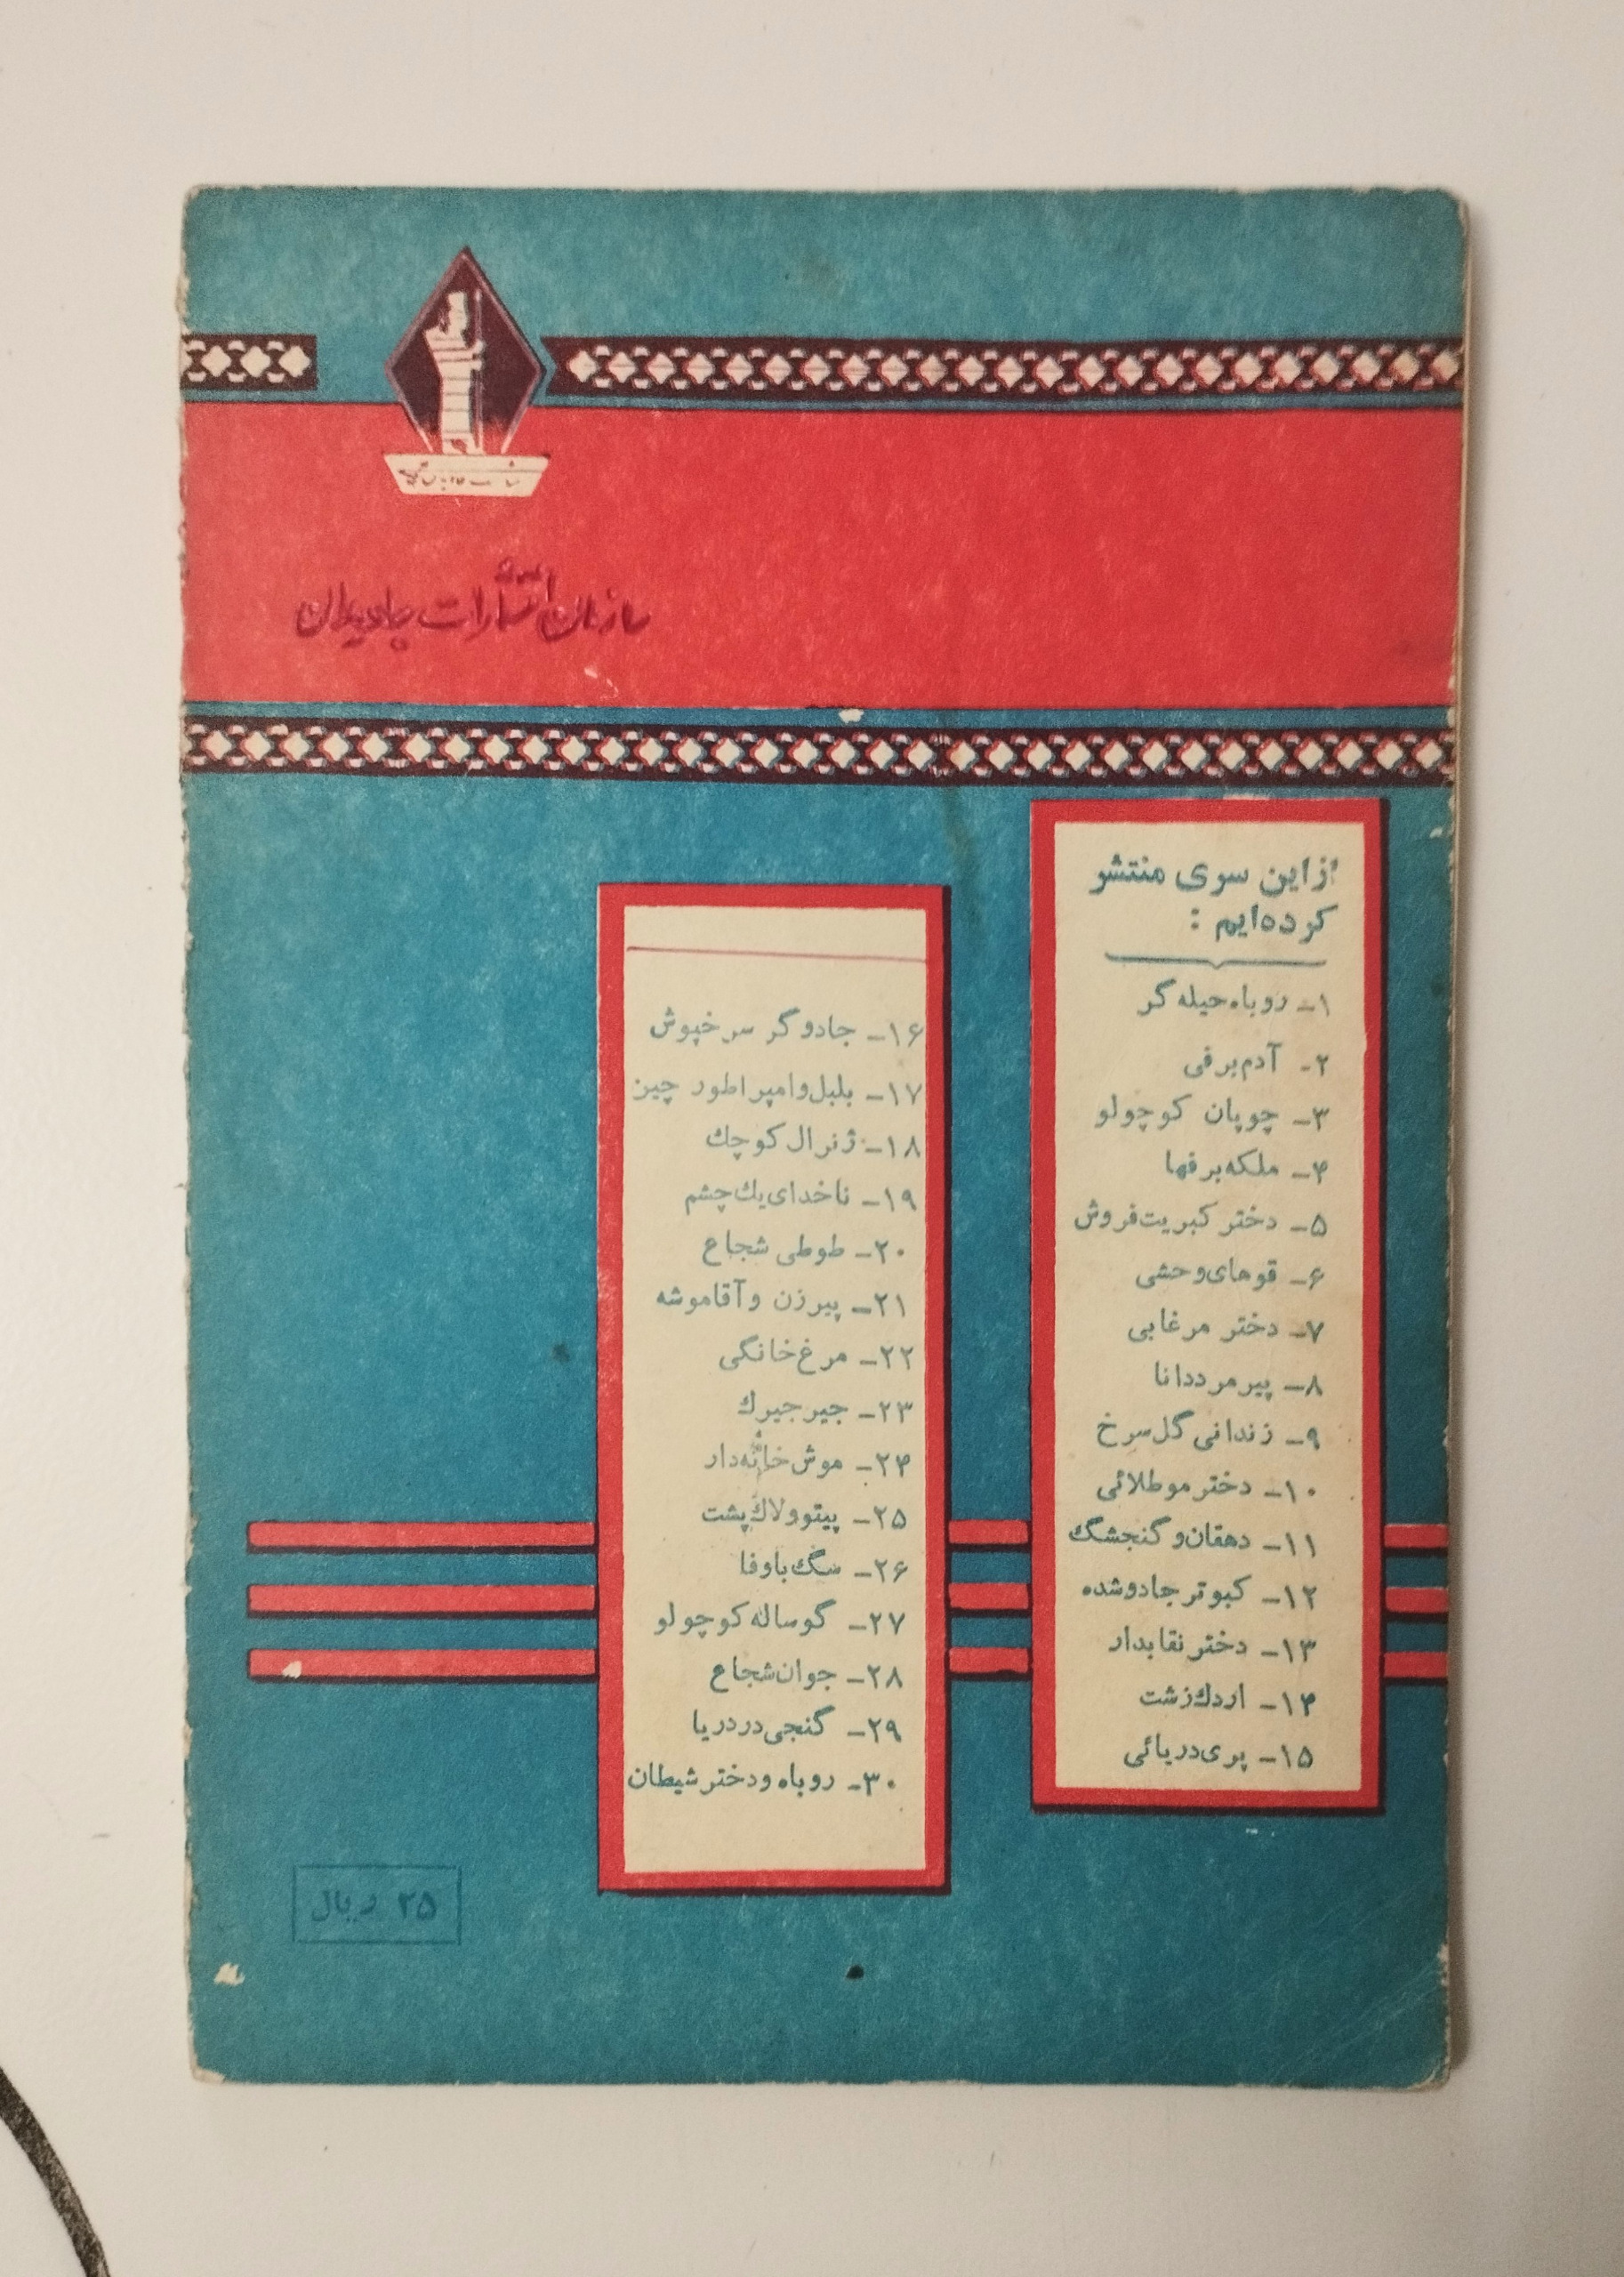 سازمان انتشارات جاویدان
از این سری منتشر
کرده‌ایم :
۱- روباه حیله گر
۲- آدم برفی
۳- چوپان کوچولو
۴- ملکه برفها
۵- دختر کبریت فروش
۶- قوهای وحشی
۷- دختر مرغابی
۸- پیرمرد دانا
۹- زندانی گل سرخ
۱۰- دختر موطلائی
۱۱- دهقان و گنجشگ
۱۲- کبوتر جادو شده
۱۳- دختر نقابدار
۱۴- اردك زشت
۱۵- پری دریائی
۱۶- جادوگر سرخپوش
۱۷- بلبل و امپراطور چین
۱۸- ژنرال کوچك
۱۹- ناخدای يك چشم
۲۰- طوطی شجاع
۲۱- پیرزن و آقا موشه
۲۲- مرغ خانگی
۲۳- جیرجیرك
۲۴- موش خانه‌دار
۲۵- پیتو و لاك پشت
۲۶- سگ با وفا
۲۷- گوساله کوچولو
۲۸- جوان شجاع
۲۹- گنجی در دریا
۳۰- روباه و دختر شیطان
۲۵ ریال